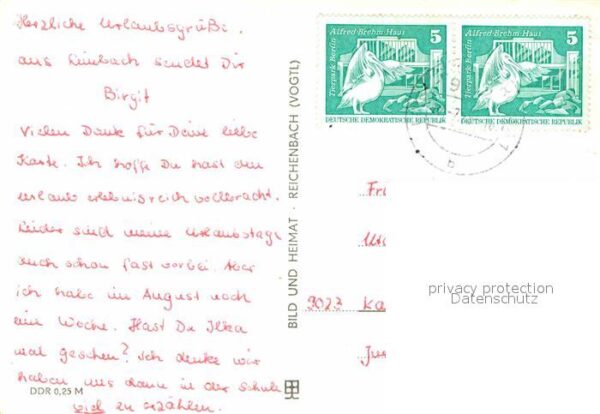 Herzliche Urlaubsgrüße.
aus Limbach sendet Dir
Birgit
Vielen Dank für Deine liebe
Karte. Ich hoffe Du hast den
Urlaub erlebnisreich vollbracht.
Leider sind meine Urlaubstage
auch schon fast vorbei. Aber
ich habe im August noch
eine Woche. Hast Du Ilka
mal gesehen? Ich denke wir
haben uns dann in der Schule
viel zu erzählen.
DDR 0,25 M
BILD UND HEIMAT · REICHENBACH (VOGTL)
Alfred-Brehm-Haus 5
Tierpark Berlin
DEUTSCHE DEMOKRATISCHE REPUBLIK
Alfred-Brehm-Haus 5
Tierpark Berlin
DEUTSCHE DEMOKRATISCHE REPUBLIK
Fri
9023 Ka
privacy protection
Datenschutz